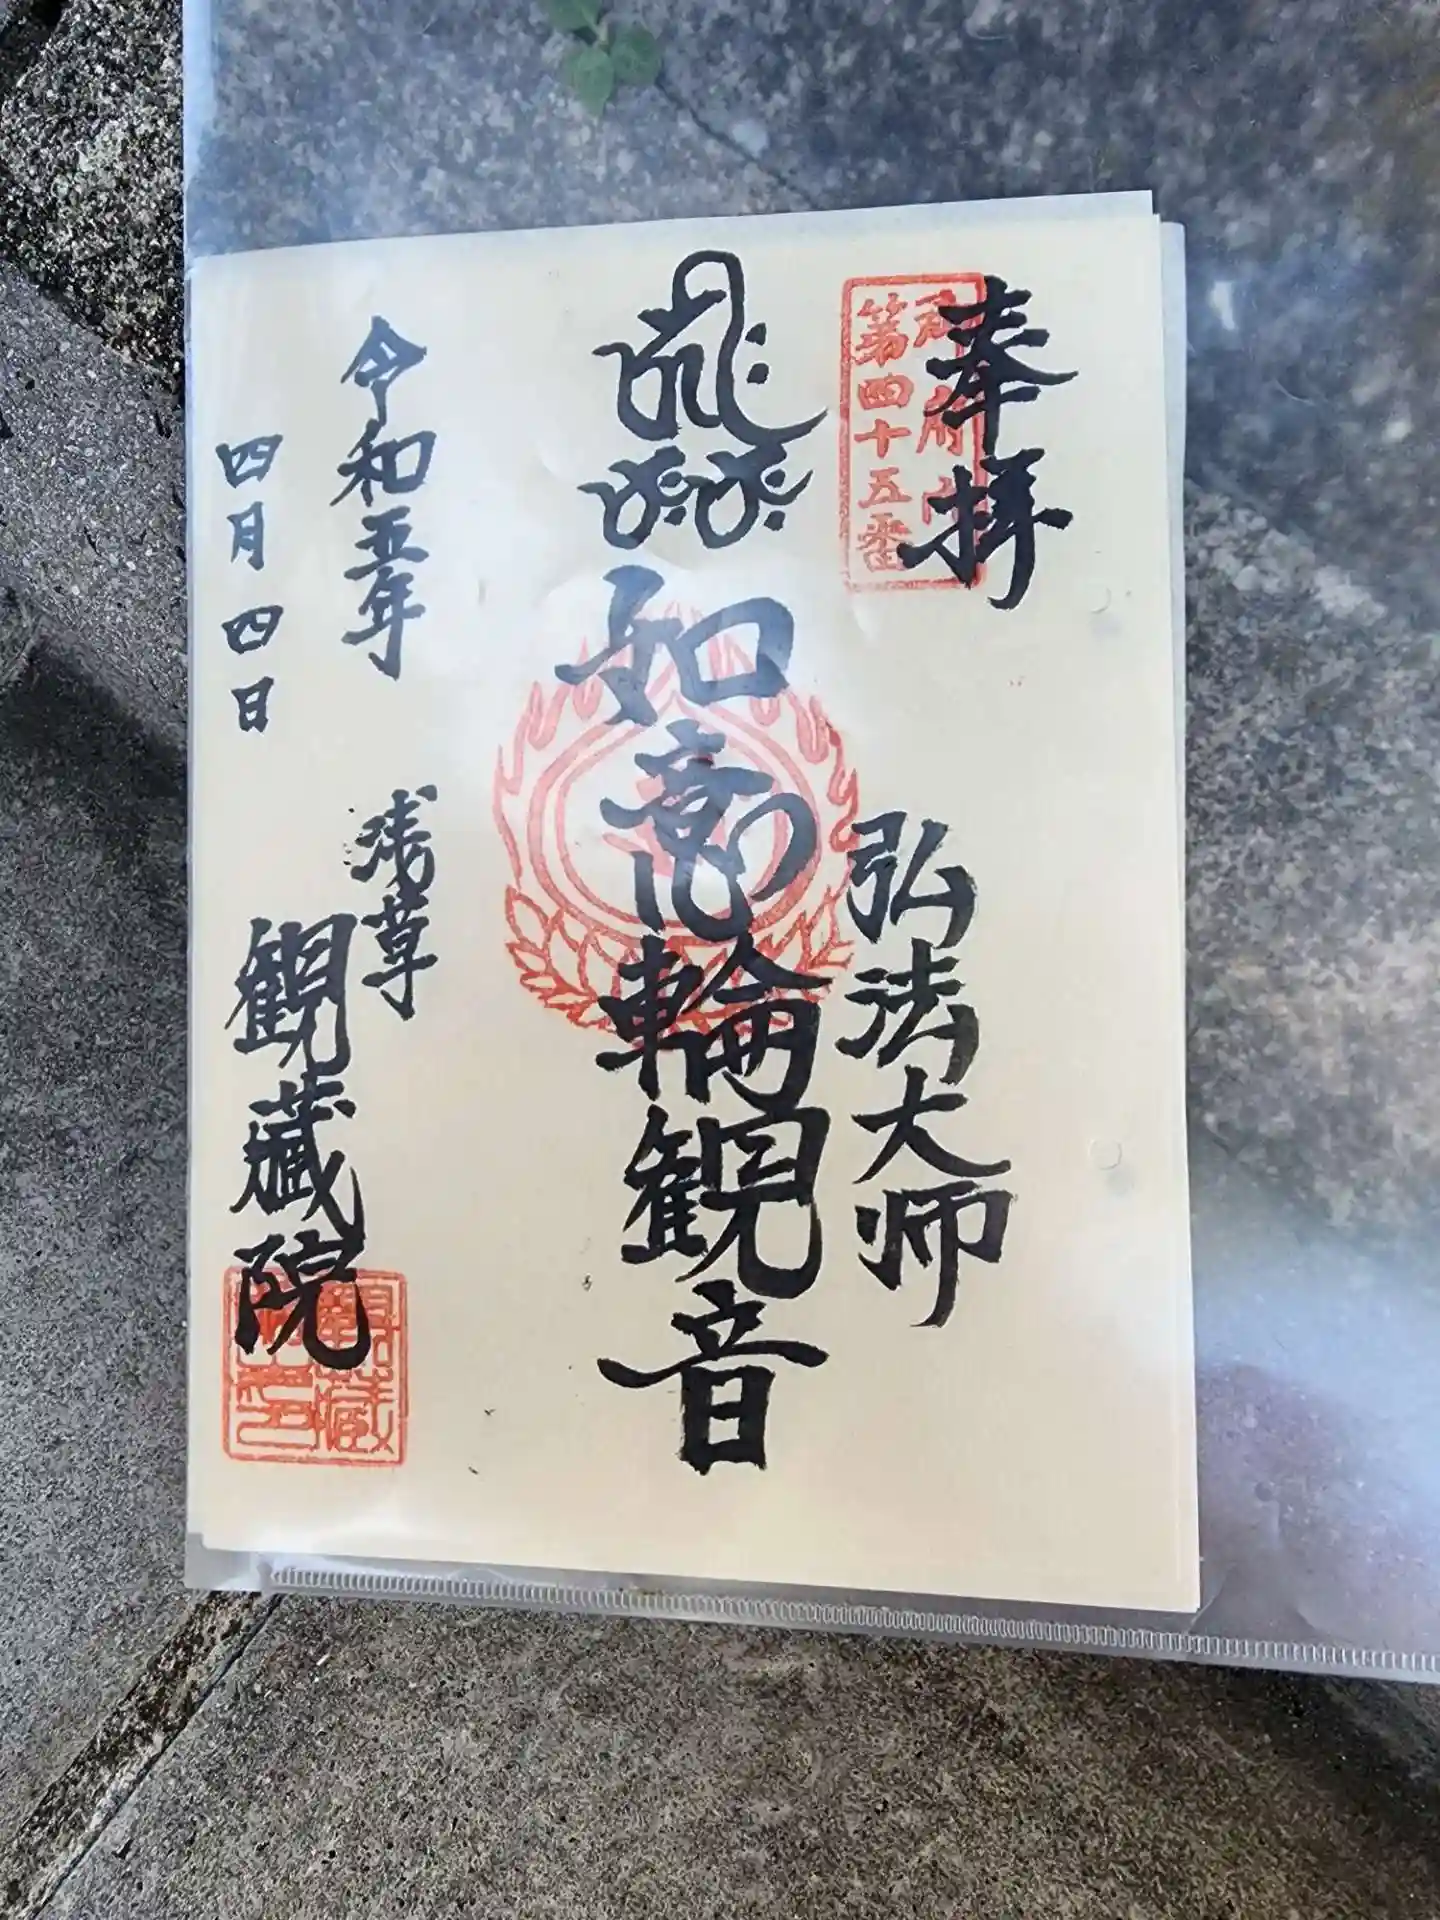 奉拝
第四十五番
弘法大师
如意輪観音
令和五年
四月四日
浅草
観蔵院